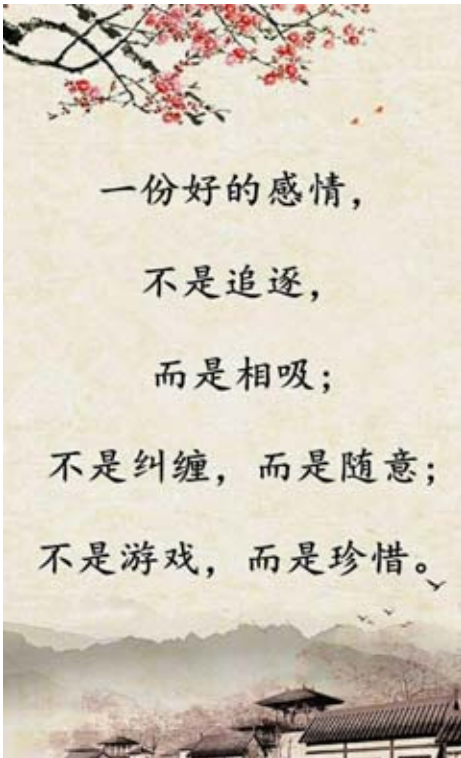 一份好的感情，
不是追逐，
而是相吸；
不是纠缠，而是随意；
不是游戏，而是珍惜。